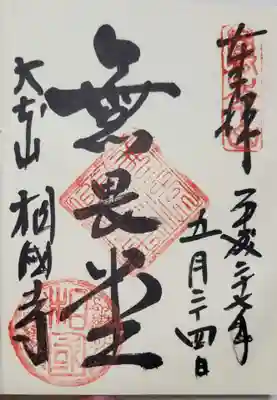 奉拝
平成二十七年
五月二十四日
無畏堂
大本山 相国寺